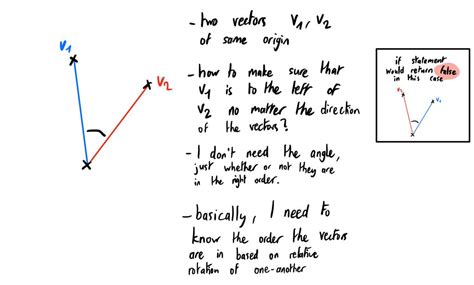 V1
V2
- two vectors V1, V2
of same origin
- how to make sure that
V1 is to the left of
V2 no matter the direction
of the vectors?
- I don't need the angle,
just whether or not they are
in the right order.
- basically, I need to
know the order the vectors
are in based on relative
rotation of one-another
if statement
would return false
in this case
V1